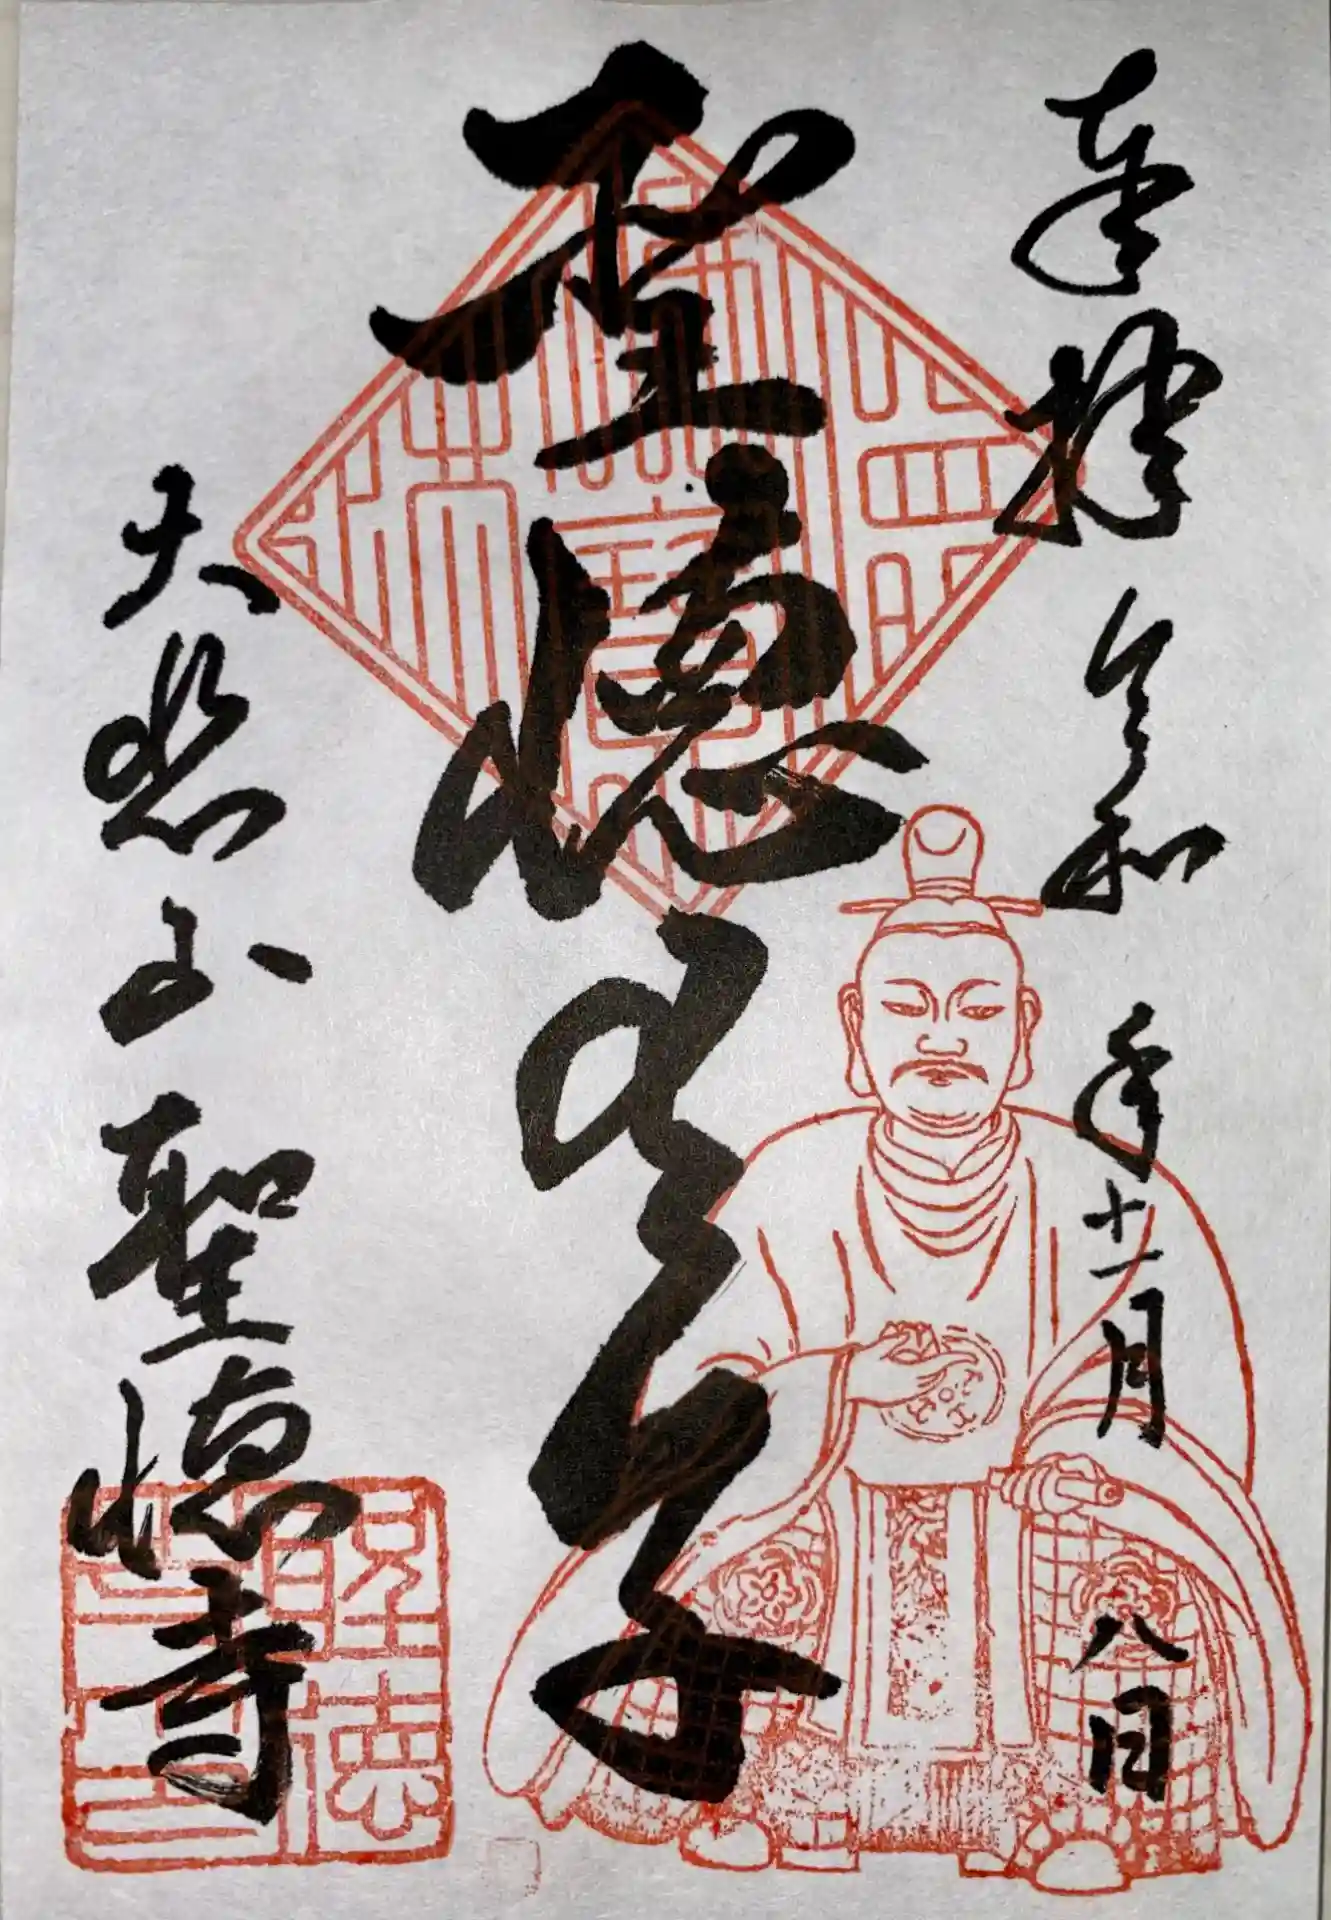 奉拝 令和 年十一月八日
聖徳太子
大悲山 聖徳寺